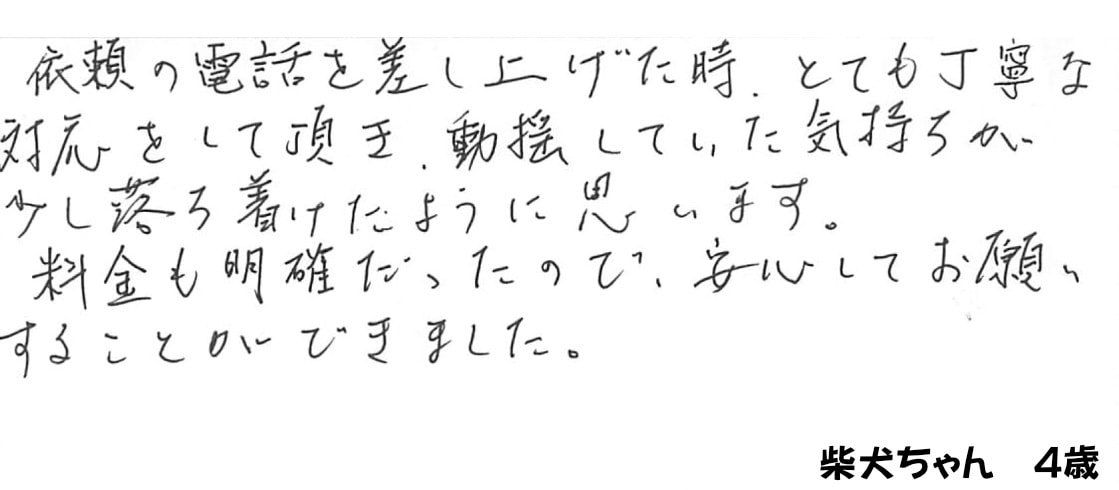 依頼の電話を差し上げた時、とても丁寧な
対応をして頂き、動揺していた気持ちが
少し落ち着けたように思います。
料金も明確だったので、安心してお願い
することができました。
柴犬ちゃん　4歳